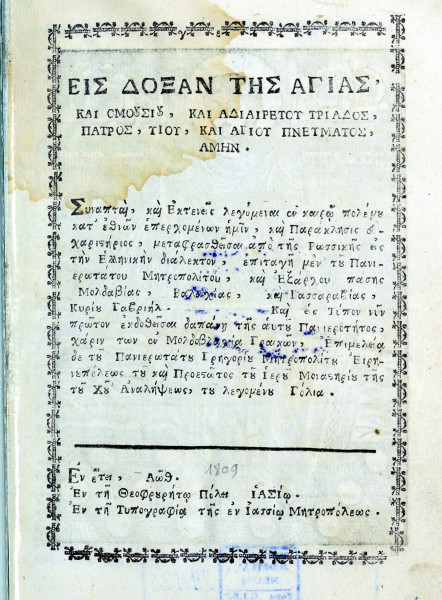 ΕΙΣ ΔΟΞΑΝ ΤΗΣ ΑΓΙΑΣ,
ΚΑΙ ΟΜΟȢΣΙȢ, ΚΑΙ ΑΔΙΑΙΡΕΤΟΥ ΤΡΙΑΔΟΣ,
ΠΑΤΡΟΣ, ΥΙΟΥ, ΚΑΙ ΑΓΙΟΥ ΠΝΕΥΜΑΤΟΣ,
ΑΜΗΝ.
Συναπταὶ, καὶ Εκτενεῖς λεγόμεναι ἐν καιρῷ πολέμȣ
κατ' ἐθνῶν ἐπερχομένων ἡμῖν, καὶ Παράκλησις ἐυ
χαριστήριος, μεταφρασθεῖσαι ἀπὸ τῆς Ρωσσικῆς εἰς
τὴν Ελληνικὴν διάλεκτον, ἐπιταγῇ μὲν τȣ̃ Πανι-
ερωτάτου Μητροπολίτου, καὶ Εξάρχου πάσης
Μολδαβίας, Βλαχίας, καὶ Βασσαραβίας,
Κυρίου Γαβριήλ. Καὶ εἰς Τύπον νῦν
πρῶτον ἐκδοθεῖσαι δαπάνῃ τῆς αὐτȣ̃ Πανιερότητος,
χάριν τῶν ἐν Μολδοβλαχίᾳ Γραικῶν, Επιμελείᾳ
δὲ τȣ̃ Πανιερωτάτȣ Γρηγορίȣ Μητροπολίτȣ Εἰρη-
νȣπόλεως τȣ̃ καὶ Προεστῶτος τȣ̃ Ιερȣ̃ Μοναστηρίȣ τῆς
τȣ̃ Χȣ̃ Αναλήψεως, τȣ̃ λεγομένȣ Γόλια.
Εν ἔτει, Αωθ. 1809
Εν τῇ Θεοφρȣρήτῳ Πόλει ΙΑΣΙῳ.
Εν τῇ Τυπογραφίᾳ τῆς ἐν Ιασσίῳ Μητροπόλεως.